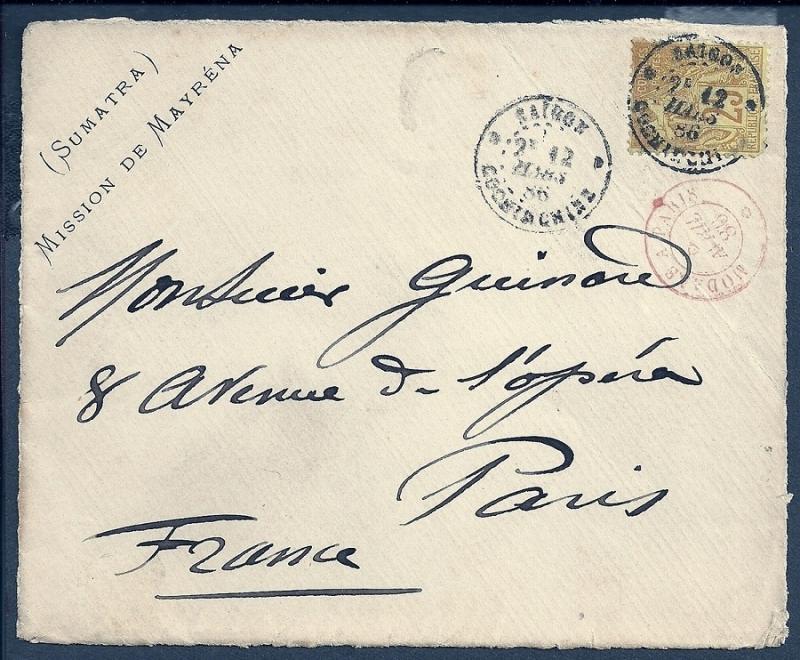 (SUMATRA)
MISSION DE MAYRÉNA
SAIGON
2E 12
MARS
86
COCHINCHINE
SAIGON
2E 12
MARS
86
COCHINCHINE
25
MODANE A PARIS
AVRIL
86
Monsieur Guinard
8 Avenue de l'opéra
Paris
France